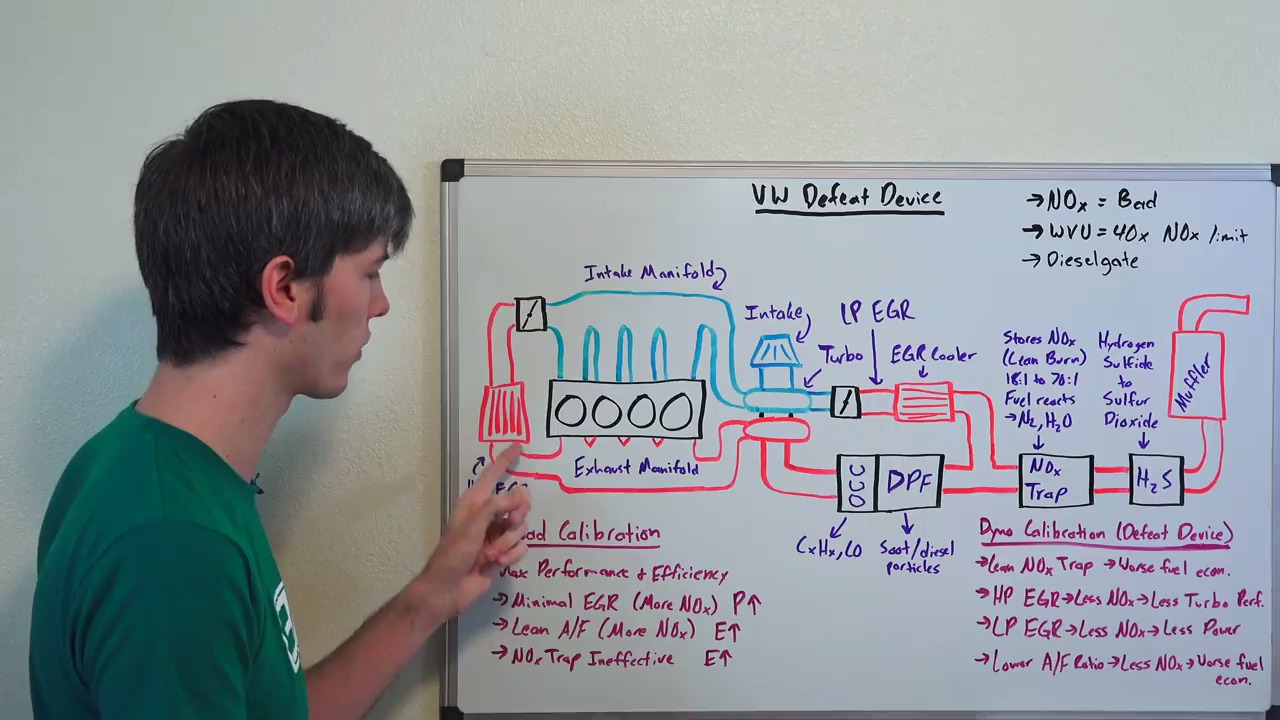 VW Defeat Device
→ NOx = Bad
→ WVU = 40x NOx limit
→ Dieselgate
Intake Manifold
Intake
LP EGR
Turbo
EGR Cooler
Stores NOx
(Lean Burn)
18:1 to 70:1
Fuel reacts
→ N₂, H₂O
Hydrogen
Sulfide
to
Sulfur
Dioxide
Muffler
Exhaust Manifold
DPF
NOx
Trap
H₂S
CxHx, CO
Soot/diesel
particles
Calibration
Max Performance & Efficiency
→ Minimal EGR (More NOx) P↑
→ Lean A/F (More NOx) E↑
→ NOx Trap Ineffective E↑
Dyno Calibration (Defeat Device)
→ Lean NOx Trap → Worse fuel econ.
→ HP EGR → Less NOx → Less Turbo Perf.
→ LP EGR → Less NOx → Less Power
→ Lower A/F Ratio → Less NOx → Worse fuel
econ.